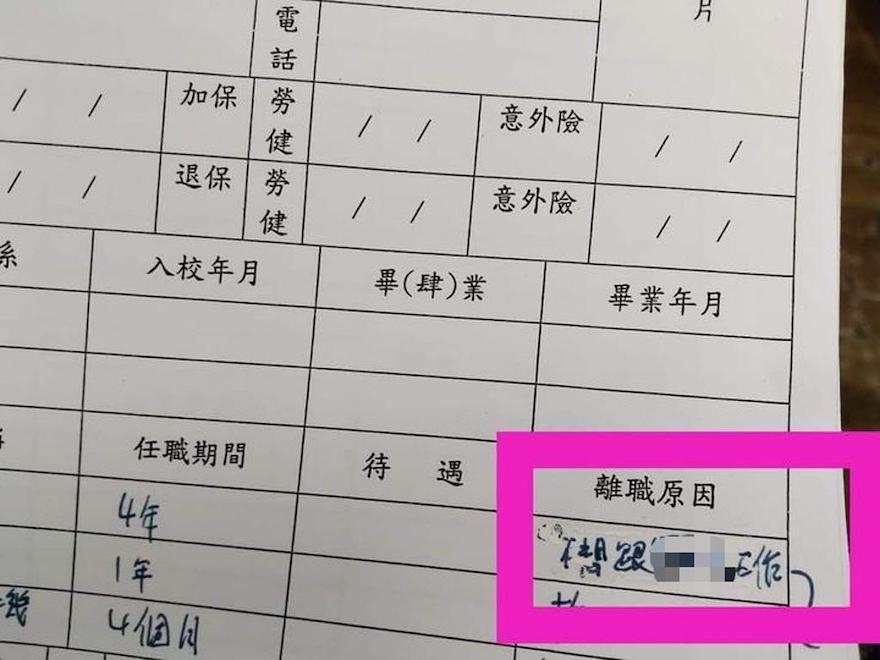 片
電話
/ / 加保 勞健 / / 意外險 / /
退保 勞健 / / 意外險 / /
系 入校年月 畢(肄)業 畢業年月
任職期間 待遇 離職原因
4年 想跟 工作
1年
4個月